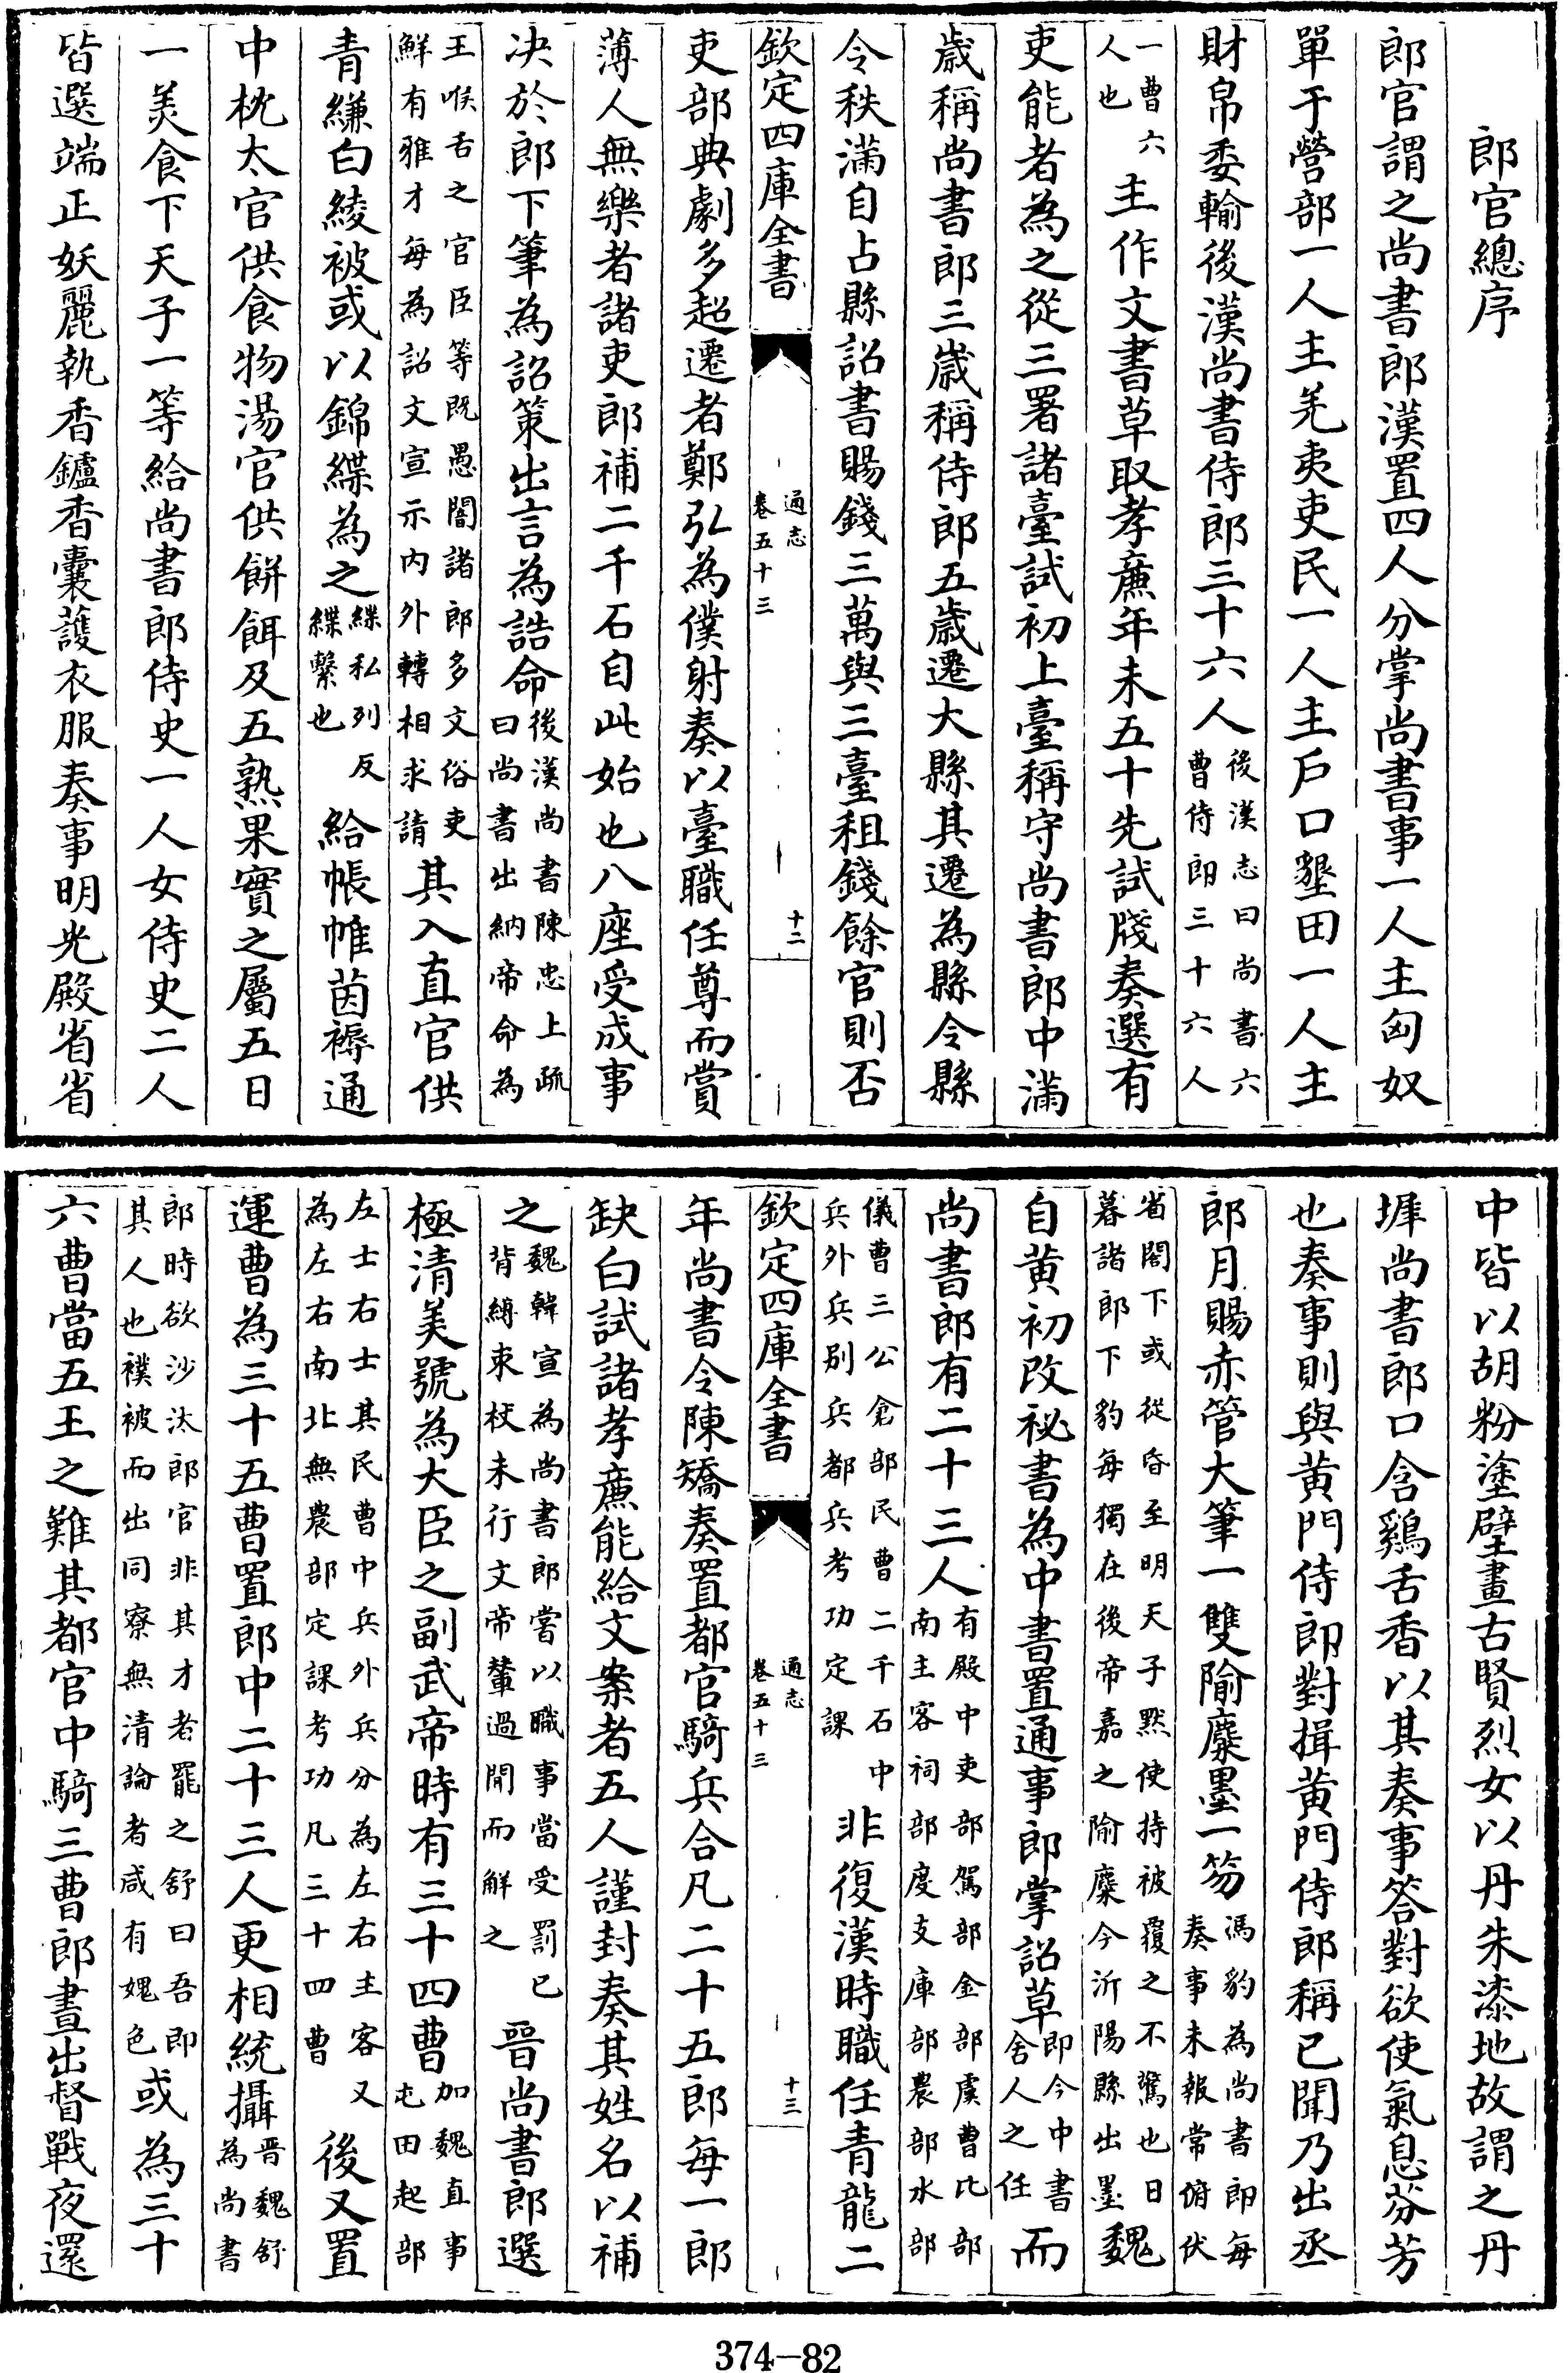 郎官總序
郎官謂之尚書郎漢置四人分掌尚書事一人主匈奴
單于營部一人主羌夷吏民一人主戶口墾田一人主
財帛委輸後漢尚書侍郎三十六人後漢志曰尚書六曹侍郎三十六人
一曹六人也主作文書草取孝亷年未五十先試牋奏選有
吏能者為之從三署諸臺試初上臺稱守尚書郎中滿
歳稱尚書郎三歳稱侍郎五歳遷大縣其遷為縣令縣
令秩滿自占縣詔書賜錢三萬與三臺租錢餘官則否
欽定四庫全書 通志 卷五十三 十二
吏部典劇多超遷者鄭弘為僕射奏以臺職任尊而賞
薄人無樂者諸吏郎補二千石自此始也八座受成事
决於郎下筆為詔策出言為誥命後漢尚書陳忠上疏曰尚書出納帝命為
王喉舌之官臣等既愚闇諸郎多文俗吏鮮有雅才每為詔文宣示内外轉相求請其入直官供
青縑白綾被或以錦緤為之緤私列反緤繫也給帳帷茵褥通
中枕太官供食物湯官供餅餌及五熟果實之屬五日
一美食下天子一等給尚書郎侍史一人女侍史二人
皆選端正妖麗執香鑪香囊護衣服奏事明光殿省省
中皆以胡粉塗壁畫古賢烈女以丹朱漆地故謂之丹
墀尚書郎口含鷄舌香以其奏事答對欲使氣息芬芳
也奏事則與黄門侍郎對揖黄門侍郎稱已聞乃出丞
郎月賜赤管大筆一雙隃麋墨一笏馮豹為尚書郎每奏事未報常俯伏
省閤下或從昏至明天子黙使持被覆之不驚也日暮諸郎下豹每獨在後帝嘉之隃麋今沂陽縣出墨魏
自黄初改祕書為中書置通事郎掌詔草即今中書舍人之任而
尚書郎有二十三人有殿中吏部駕部金部虞曹比部南主客祠部度支庫部農部水部
儀曹三公倉部民曹二千石中兵外兵别兵都兵考功定課非復漢時職任青龍二
欽定四庫全書 通志 卷五十三 十三
年尚書令陳矯奏置都官騎兵合凡二十五郎每一郎
缺白試諸孝亷能給文案者五人謹封奏其姓名以補
之魏韓宣為尚書郎嘗以職事當受罰已背縛束杖未行文帝輦過聞而解之晉尚書郎選
極清美號為大臣之副武帝時有三十四曹加魏直事屯田起部
左士右士其民曹中兵外兵分為左右主客又為左右南北無農部定課考功凡三十四曹後又置
運曹為三十五曹置郎中二十三人更相統攝晋魏舒為尚書
郎時欲沙汰郎官非其才者罷之舒曰吾即其人也襆被而出同寮無清論者咸有媿色或為三十
六曹當五王之難其都官中騎三曹郎晝出督戰夜還
374-82